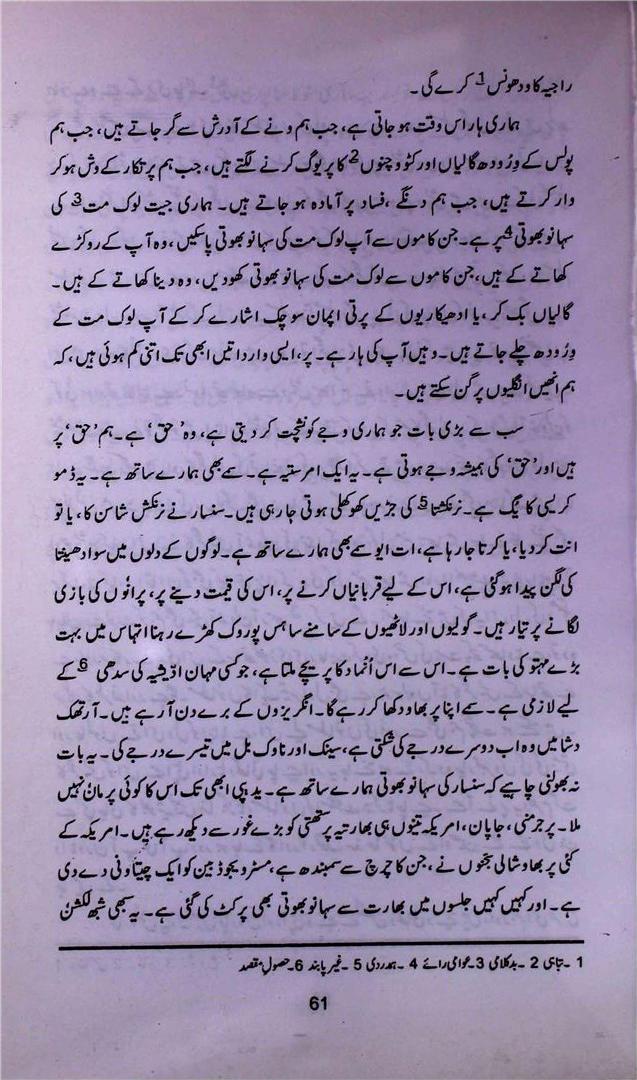 راجیہ کا ودھونس 1 کرے گی۔
ہماری ہار اس وقت ہو جاتی ہے، جب ہم ونے کے آدرش سے گر جاتے ہیں، جب ہم
پولس کے وِرُودھ گالیاں اور کٹو وچنوں 2 کا پریوگ کرنے لگتے ہیں، جب ہم پرتکار کے وش ہو کر
وار کرتے ہیں، جب ہم دنگے، فساد پر آمادہ ہو جاتے ہیں۔ ہماری جیت لوک مت 3 کی
سہانوبھوتی 4 پر ہے۔ جن کاموں سے آپ لوک مت کی سہانوبھوتی پاسکیں، وہ آپ کے روکڑے
کھاتے کے ہیں، جن کاموں سے لوک مت کی سہانوبھوتی کھودیں، وہ دینا کھاتے کے ہیں۔
گالیاں بک کر، یا ادھیکاریوں کے پرتی اپمان سوچک اشارے کر کے آپ لوک مت کے
وِرُودھ چلے جاتے ہیں۔ وہیں آپ کی ہار ہے۔ پر، ایسی وارداتیں ابھی تک اتنی کم ہوئی ہیں، کہ
ہم انھیں انگلیوں پر گن سکتے ہیں۔
سب سے بڑی بات جو ہماری وجے کو نشچت کر دیتی ہے، وہ ‘حق’ ہے۔ ہم ‘حق’ پر
ہیں اور ‘حق’ کی ہمیشہ وجے ہوتی ہے۔ یہ ایک امر ستیہ ہے۔ سمے بھی ہمارے ساتھ ہے۔ یہ ڈمو
کریسی کا یگ ہے۔ نرنکشتا 5 کی جڑیں کھوکھلی ہوتی جا رہی ہیں۔ سنسار نے نرنکش شاسن کا، یا تو
انت کر دیا، یا کرتا جا رہا ہے، ات ایو سمے بھی ہمارے ساتھ ہے۔ لوگوں کے دلوں میں سوادھینتا
کی لگن پیدا ہو گئی ہے، اس کے لیے قربانیاں کرنے پر، اس کی قیمت دینے پر، پرانوں کی بازی
لگانے پر تیار ہیں۔ گولیوں اور لاٹھیوں کے سامنے ساہس پوروک کھڑے رہنا اتہاس میں بہت
بڑے مہتو کی بات ہے۔ اس سے اس اُنماد کا پریچے ملتا ہے، جو کسی مہان ادّیشیہ کی سدھی 6 کے
لیے لازمی ہے۔ سمے اپنا پربھاو دکھا کر رہے گا۔ انگریزوں کے برے دن آ رہے ہیں۔ آرتھک
دشا میں وہ اب دوسرے درجے کی شکتی ہے، سینک اور ناوک بل میں تیسرے درجے کی۔ یہ بات
نہ بھولنی چاہیے کہ سنسار کی سہانوبھوتی ہمارے ساتھ ہے۔ یدیپی ابھی تک اس کا کوئی پرمان نہیں
ملا۔ پر جرمنی، جاپان، امریکہ تینوں ہی بھارتیہ پرستھتی کو بڑے غور سے دیکھ رہے ہیں۔ امریکہ کے
کئی پربھاوشالی سجنوں نے، جن کا چرچ سے سمبندھ ہے، مسٹر ویجوڈ بین کو ایک چیتاونی دے دی
ہے۔ اور کہیں کہیں جلسوں میں بھارت سے سہانوبھوتی بھی پرکٹ کی گئی ہے۔ یہ سبھی شبھ لکشن
1۔تباہی 2۔ بدکلامی 3۔عوامی رائے 4۔ہمدردی 5۔غیر پابند 6۔حصولِ مقصد
61